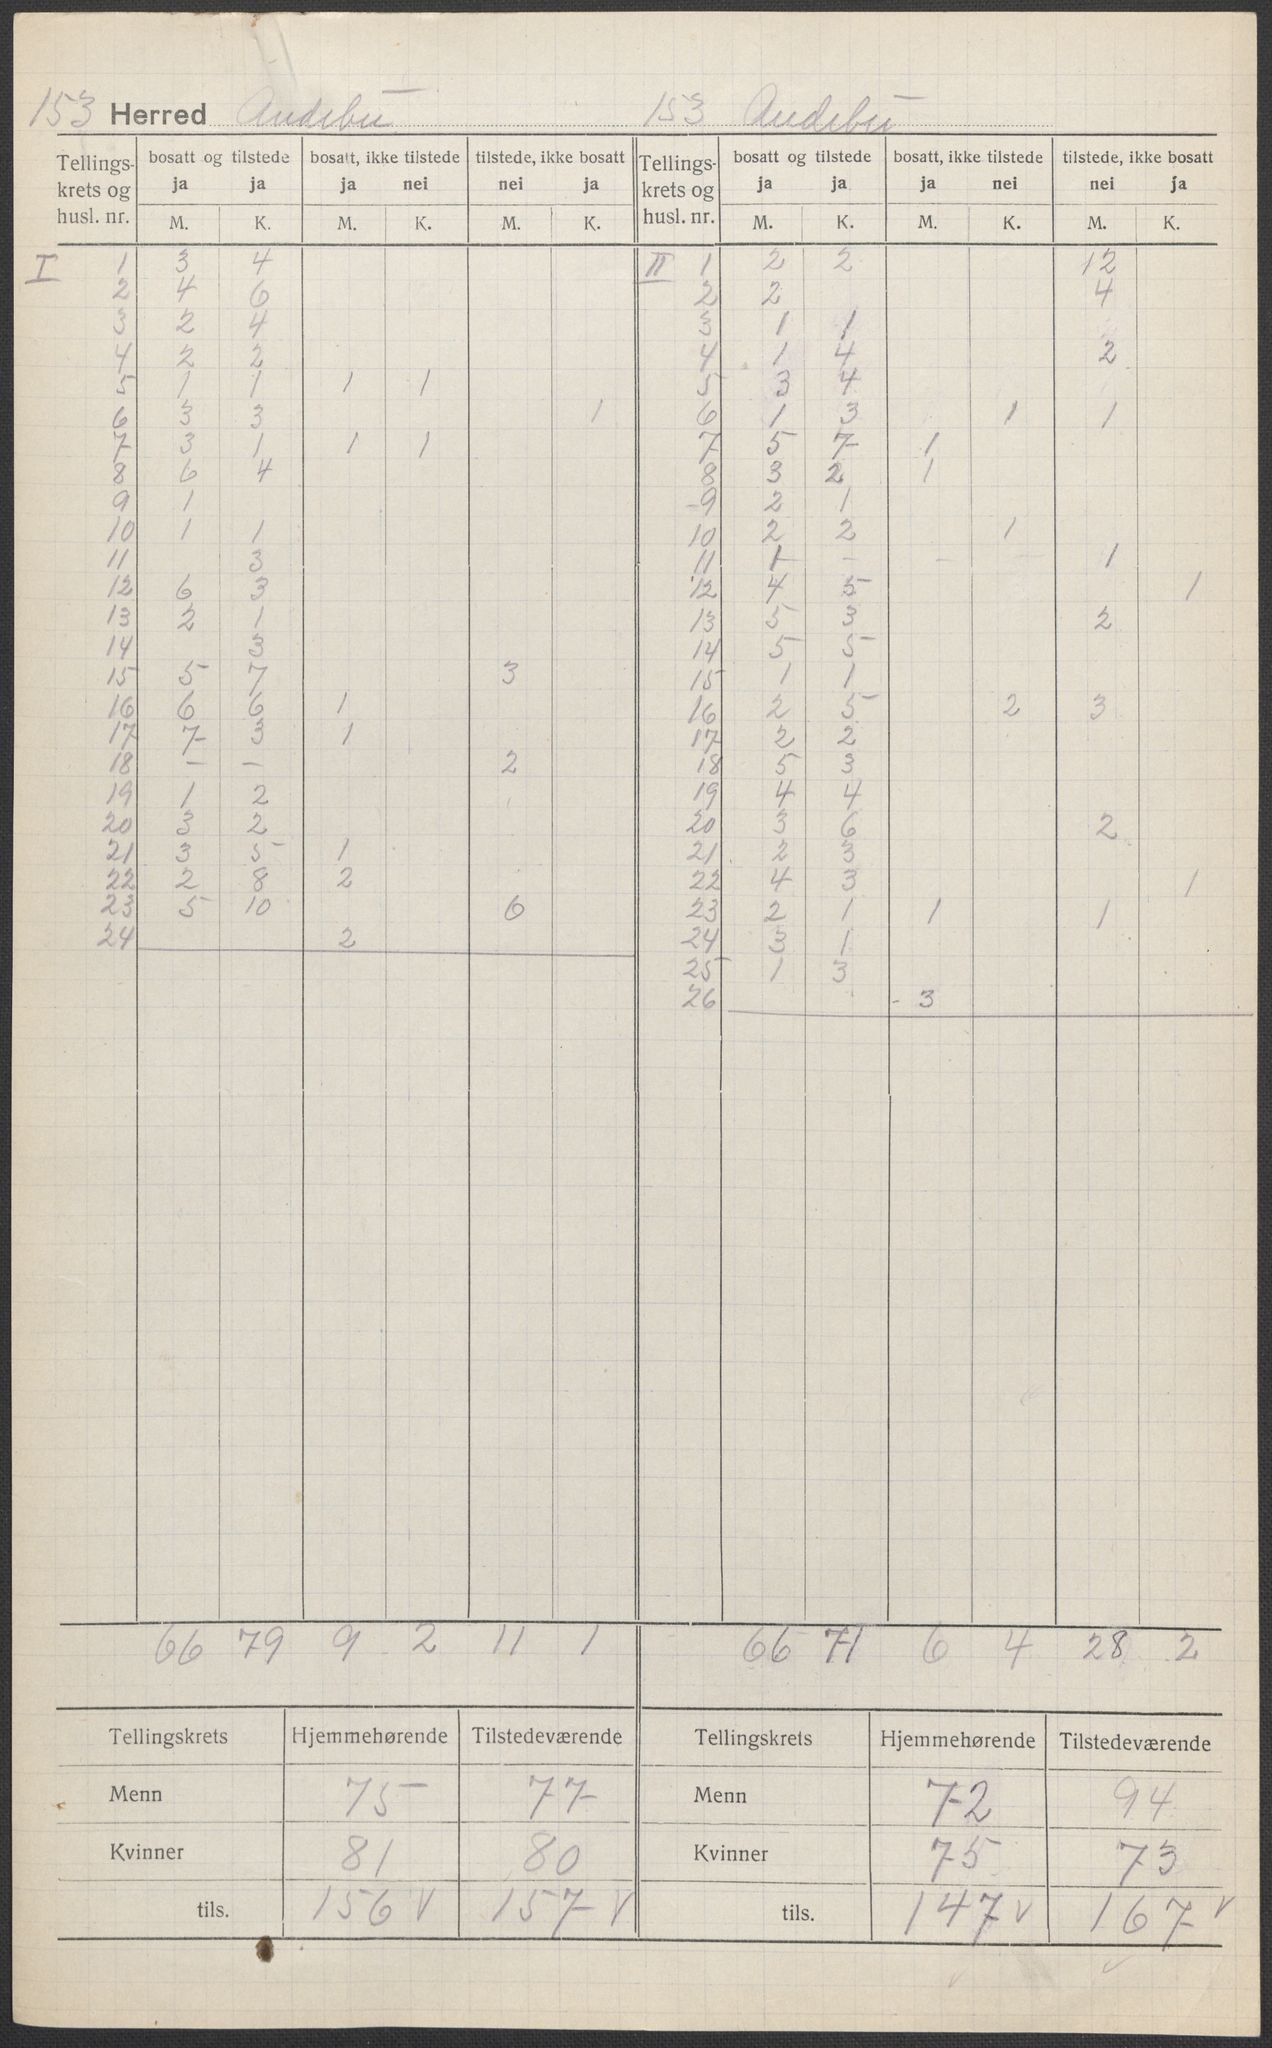 153 Herred Andebu 153 Andebu
Tellings-krets og husl. nr. | bosatt og tilstede | bosatt, ikke tilstede | tilstede, ikke bosatt | Tellings-krets og husl. nr. | bosatt og tilstede | bosatt, ikke tilstede | tilstede, ikke bosatt
ja ja | ja nei | nei ja | ja ja | ja nei | nei ja
M. K. | M. K. | M. K. | M. K. | M. K. | M. K.
I 1 | 3 | 4 | | | | | II 1 | 2 | 2 | | | 12 |
2 | 4 | 6 | | | | | 2 | 2 | | | | 4 |
3 | 2 | 4 | | | | | 3 | 1 | 1 | | | |
4 | 2 | 2 | | | | | 4 | 1 | 4 | | | 2 |
5 | 1 | 1 | 1 | 1 | | | 5 | 3 | 4 | | | |
6 | 3 | 3 | | | | 1 | 6 | 1 | 3 | | 1 | 1 |
7 | 3 | 1 | 1 | 1 | | | 7 | 5 | 7 | 1 | | |
8 | 6 | 4 | | | | | 8 | 3 | 2 | 1 | | |
9 | 1 | | | | | | 9 | 2 | 1 | | | |
10 | 1 | 1 | | | | | 10 | 2 | 2 | | 1 | |
11 | | 3 | | | | | 11 | 1 | - | - | - | 1 |
12 | 6 | 3 | | | | | 12 | 4 | 5 | | | | 1
13 | 2 | 1 | | | | | 13 | 5 | 3 | | | 2 |
14 | | 3 | | | | | 14 | 5 | 5 | | | |
15 | 5 | 7 | | | 3 | | 15 | 1 | 1 | | | |
16 | 6 | 6 | 1 | | | | 16 | 2 | 5 | | 2 | 3 |
17 | 7 | 3 | 1 | | | | 17 | 2 | 2 | | | |
18 | - | - | | | 2 | | 18 | 5 | 3 | | | |
19 | 1 | 2 | | | | | 19 | 4 | 4 | | | |
20 | 3 | 2 | | | | | 20 | 3 | 6 | | | 2 |
21 | 3 | 5 | 1 | | | | 21 | 2 | 3 | | | |
22 | 2 | 8 | 2 | | | | 22 | 4 | 3 | | | | 1
23 | 5 | 10 | | | 6 | | 23 | 2 | 1 | 1 | | 1 |
24 | | | 2 | | | | 24 | 3 | 1 | | | |
25 | 1 | 3 | | | |
26 | | | 3 | | |
66 | 79 | 9 | 2 | 11 | 1 | 66 | 71 | 6 | 4 | 28 | 2
Tellingskrets | Hjemmehørende | Tilstedeværende | Tellingskrets | Hjemmehørende | Tilstedeværende
Menn | 75 | 77 | Menn | 72 | 94
Kvinner | 81 | 80 | Kvinner | 75 | 73
tils. | 156 v | 157 v | tils. | 147 v | 167 v